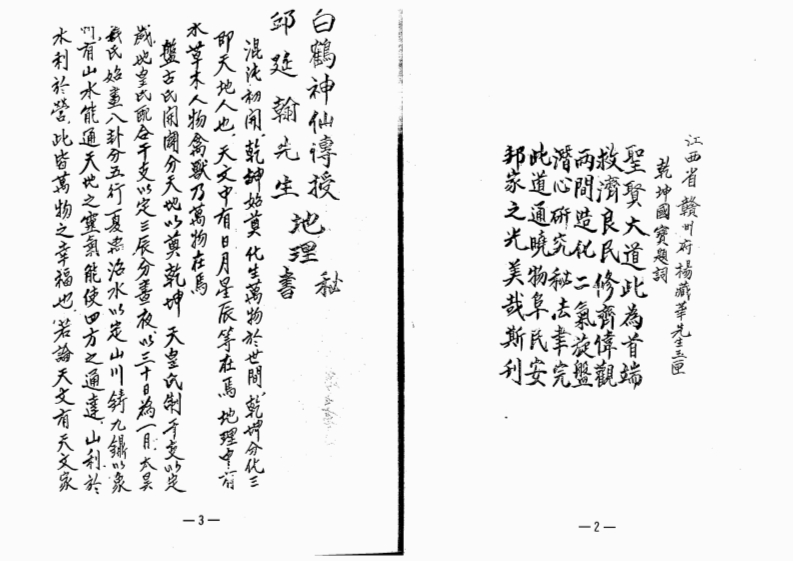 江西省贛州府楊藏華先生玉匣
乾坤國寶題詞
聖賢大道此為首端
救濟良民修齊偉觀
兩間造化二氣旋盤
潛心研究秘法聿完
此道通曉物阜民安
邦家之光美哉斯刊
—2—
白鶴神仙傳授
邱延翰先生
地理
秘書
混沌初開乾坤始奠化生萬物於世間乾坤分化三
即天地人也天文中有日月星辰等在焉地理中有
水草木人物禽獸乃萬物在焉
盤古氏開闢分天地以奠乾坤天皇氏制干支以定
歲地皇氏配合干支以定三辰分晝夜以三十日為一月太昊
羲氏始畫八卦分五行夏禹治水以定山川鑄九鼎以象
州有山水能通天地之靈氣能使四方之通達山利於
水利於營此皆萬物之幸福也若論天文有天文家
—3—